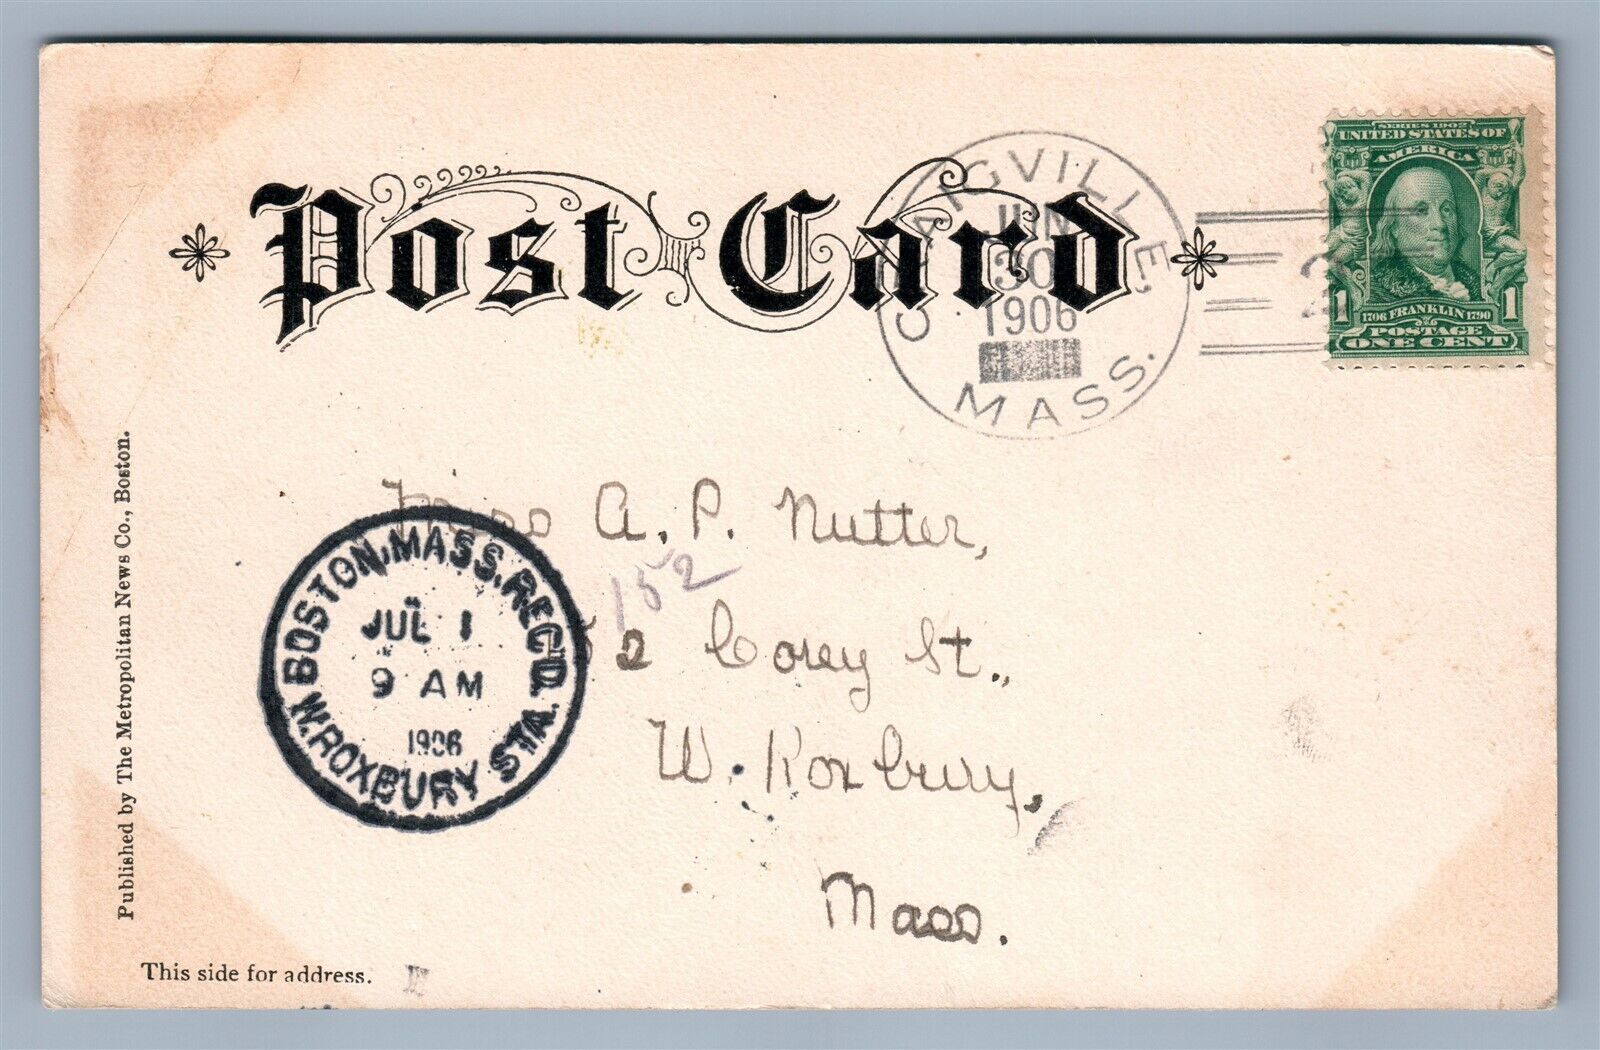 Post Card
CRAIGVILLE,
JUN
30
1906
MASS.
2
SERIES 1902
UNITED STATES OF
AMERICA
1 1706 FRANKLIN 1790 1
POSTAGE
ONE CENT
Published by The Metropolitan News Co., Boston.
Miss A. P. Nutter,
152
2 Corey St.,
W. Roxbury,
Mass.
BOSTON, MASS. REC'D.
JUL 1
9 AM
1906
W. ROXBURY STA.
This side for address.